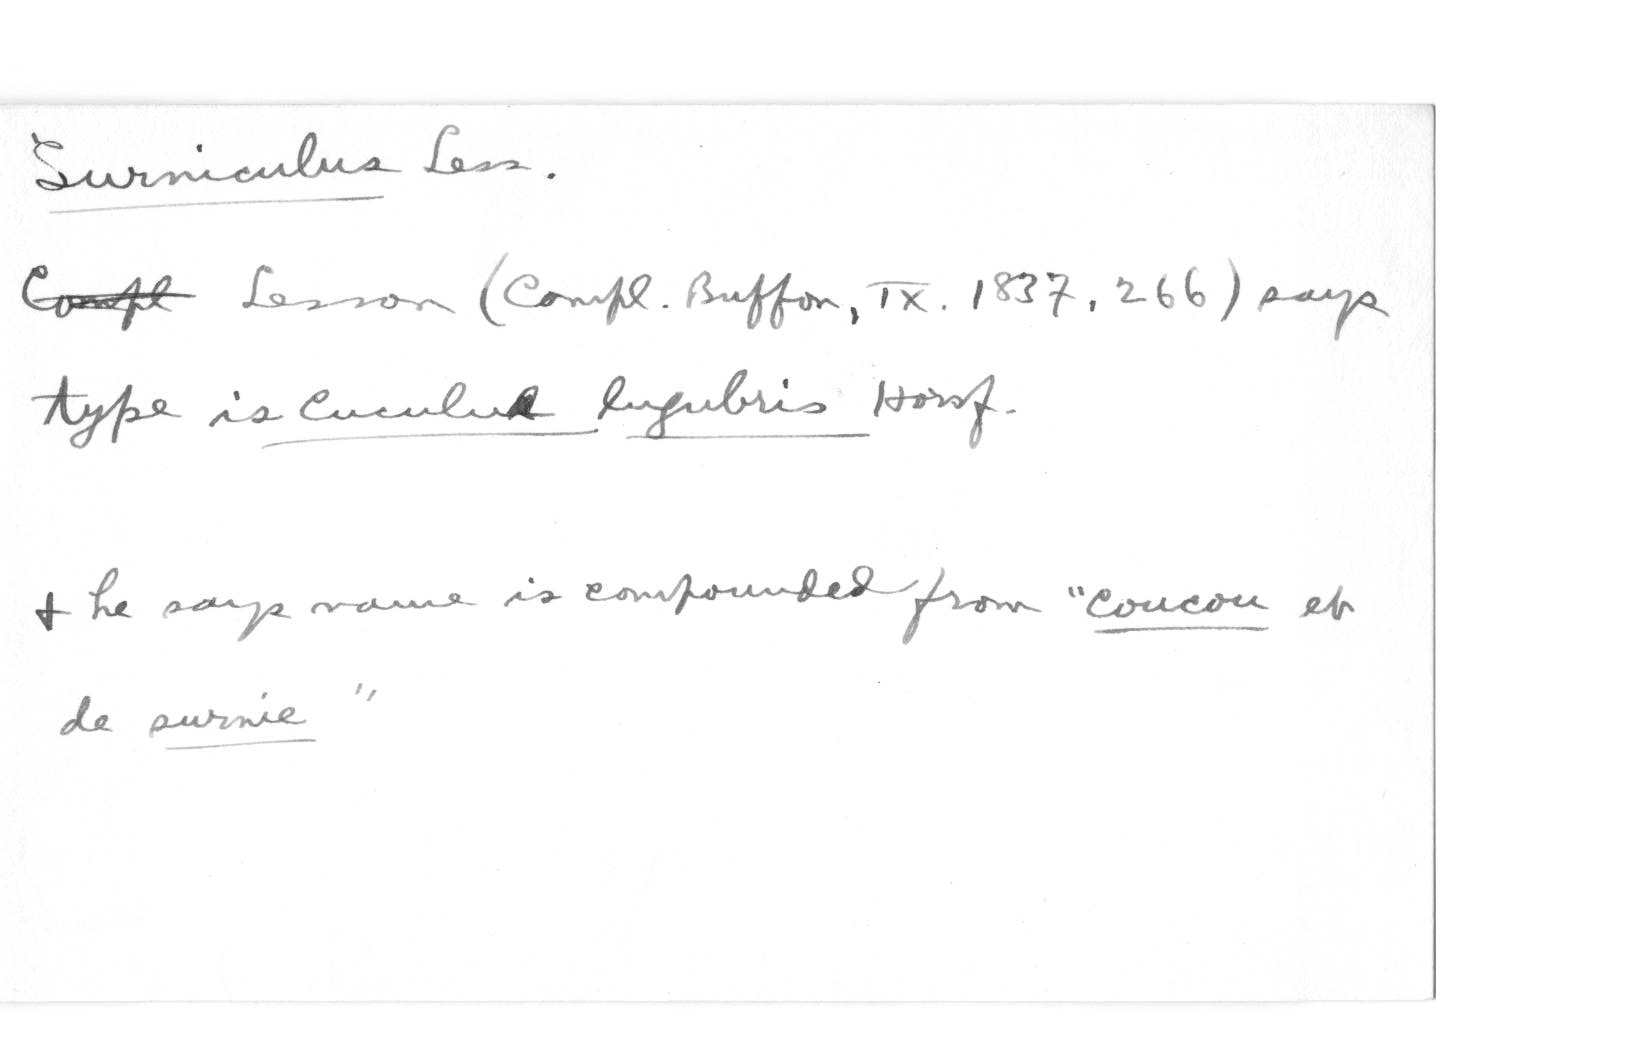 Surniculus Less.
Compl Lesson (Compl. Buffon, IX. 1837, 266) says
type is Cuculus lugubris Horsf.
+ he says name is compounded from "coucou et
de surnie"